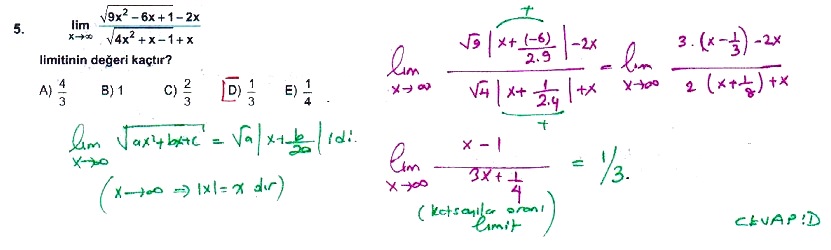 5. lim x→∞ (√(9x² − 6x + 1) − 2x) / (√(4x² + x − 1) + x)
limitinin değeri kaçtır?
A) 4/3 B) 1 C) 2/3 D) 1/3 E) 1/4
lim x→∞ √(ax²+bx+c) = √a |x + b/2a| idi.
(x→∞ ⇒ |x| = x dir)
lim x→∞ (√9 |x + (-6)/2.9| − 2x) / (√4 |x + 1/2.4| + x) = lim x→∞ (3.(x − 1/3) − 2x) / (2(x + 1/8) + x)
+
+
lim x→∞ (x − 1) / (3x + 1/4) = 1/3.
(katsayılar oranı
limit)
CEVAP:D